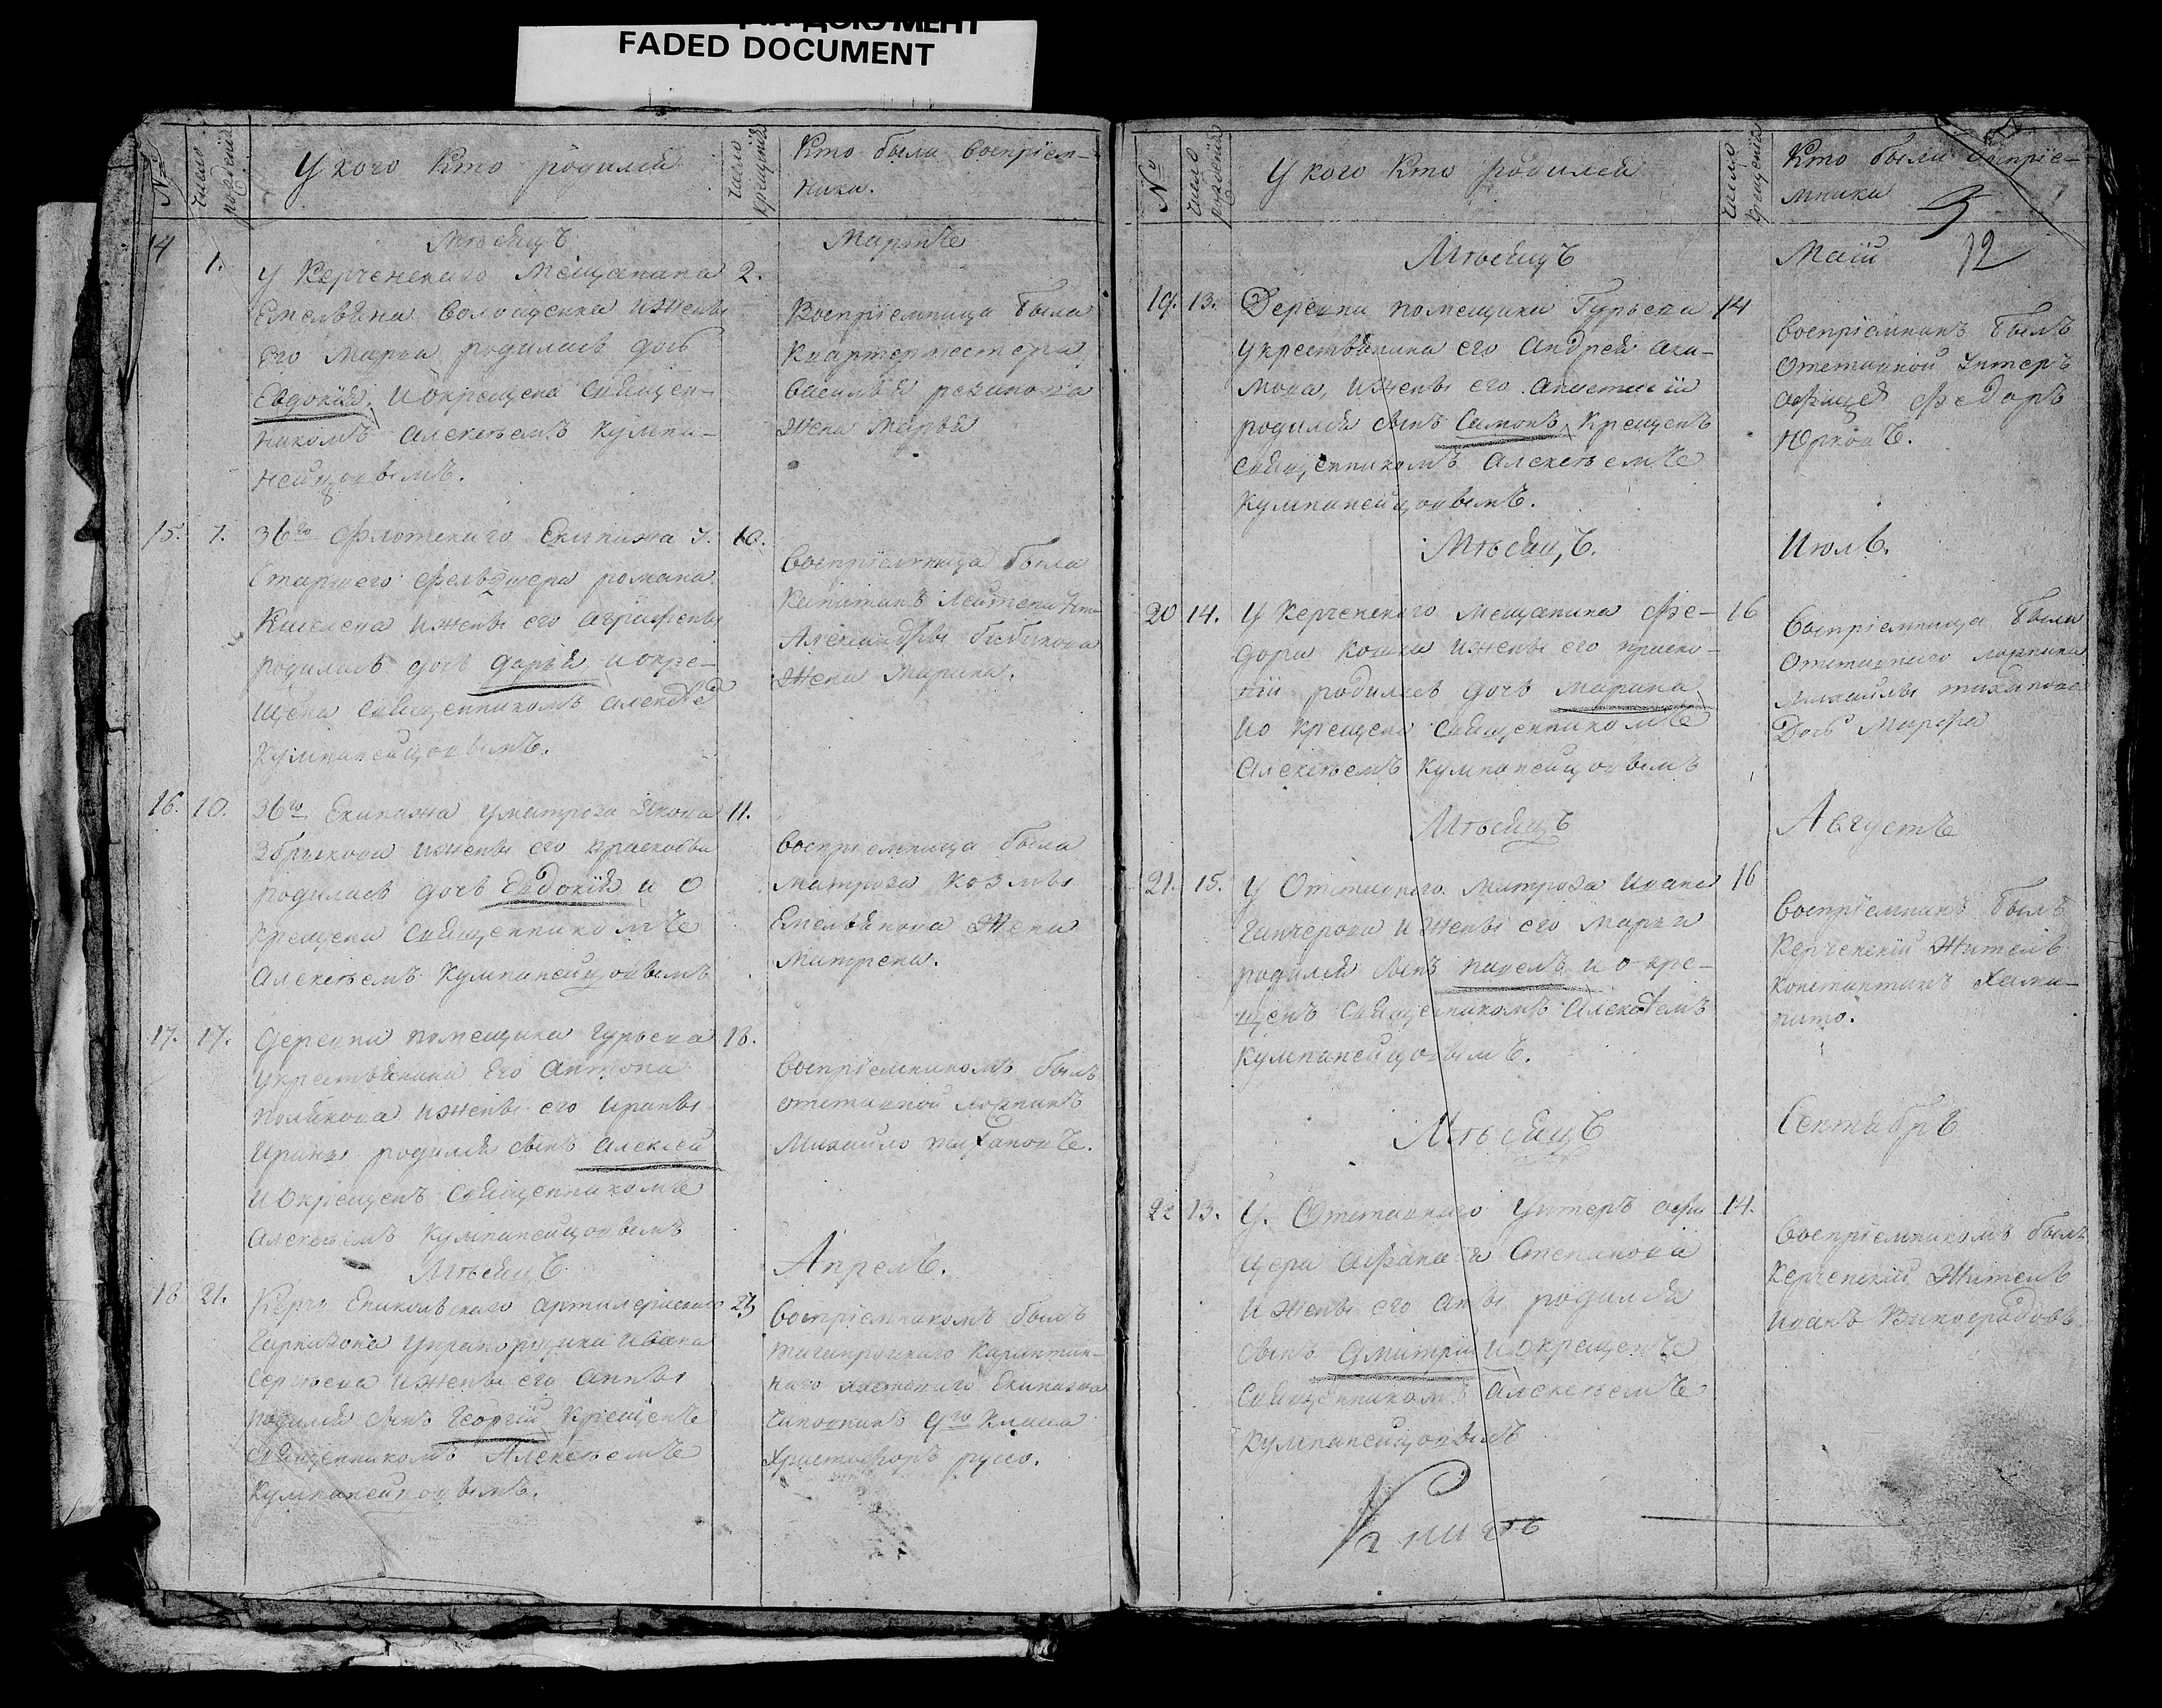 ДОКУМЕНТ
FADED DOCUMENT
№
Число рождения
У кого Кто родился
Число крещения
Кто были Восприем-
ники.
Мѣсяцъ
Мартъ
14
1.
У Керченскаго Мещанина
Емельяна Солоденка и Жены
Его Марьи родилась дочь
Евдокия, И окрещена Священ-
никомъ Алексѣемъ Кумпа-
нейцовымъ.
2.
Восприемница была
Квартермейстера
Василья
Жена Марья
15.
7.
36го Флотскаго Екипажа У.
Старшего Фельдшера романа
Киселева и Жены его аграфены
родилась дочь дарья, и окре-
щена священникомъ алексѣе
Кумпанейцовымъ.
10.
Восприемница была
Капитанъ Лейтена
Александры бибикова
Жена Марина.
16.
10.
36го Екипажа у матроза Якова
и Жены его прасковьи
родилась дочь Евдокия и о
крещена священникомъ
Алексѣемъ Кумпанейцовымъ
11.
Восприемница была
матроза Козмы
Емельянова Жена
Матрена.
17.
17.
деревни помещика гурьева
у крестьянина Его Антона
полякова и жены его ирины
Ирины родился сынъ Алексей
И Окрещенъ Священникомъ
Алексѣемъ Кумпанейцовымъ
18.
Восприемникомъ былъ
отставной
Михайло
Мѣсяцъ
Апрель.
18
21.
Керчь Еникольскаго артилерискаго
Гарнизона Унтерофицика Ивана
Сергѣева и Жены его Анны
родился сынъ Георгий, Крещенъ
Священникомъ Алексѣемъ
Кумпанейцовымъ.
23
Восприемникомъ былъ
таганрогскаго Карантин-
наго Екипажа
чиновникъ 9го Класа
Христофоръ русо.
№
Число рождения
У кого Кто родился
Число крещения
Кто были Восприе-
мники
Мѣсяцъ
Маий
12
19.
13.
Деревни помещика Гурьева
у крестьянина его Андрея аки-
мова, и Жены его анастасии
родился сынъ Самонъ, Крещенъ
священникомъ Алексѣемъ
Кумпанейцовымъ.
14
Восприемникъ былъ
Отставной Унтеръ
офицер Федоръ
Юрковъ.
Мѣсяцъ.
Июль.
20
14.
У Керченскаго мещанина Фе-
дора и Жены его праско-
вии родилась дочь Марина
И о крещена священникомъ
Алексѣемъ Кумпанейцовымъ
16
Восприемница была
Отставнаго
Михайлы
Дочь Марфа
Мѣсяцъ
Августъ
21.
15.
У Отставнаго. Матроза Ивана
Ганчерова и Жены его Марьи
родился сынъ павелъ и о кре-
щенъ Священникомъ Алексѣемъ
Кумпанейцовымъ.
16
Восприемникъ былъ
Керченский Житель
Константинъ
Мѣсяцъ
Сентябрь
22
13.
У. Отставнаго Унтеръ офи
цера Афанасия Степанова
и Жены его Аны родился
сынъ Дмитрий и окрещенъ
Священникомъ Алексѣемъ
Кумпанейцовымъ
14.
Восприемникомъ былъ
Керченский Житель
Иванъ Виноградовъ